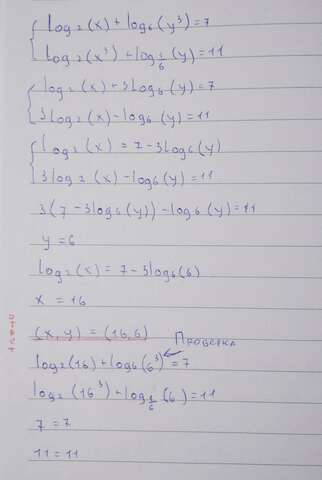 log₂(x) + log₆(y³) = 7
log₂(x³) + log_{1/6}(y) = 11
log₂(x) + 3log₆(y) = 7
3log₂(x) - log₆(y) = 11
log₂(x) = 7 - 3log₆(y)
3log₂(x) - log₆(y) = 11
3(7 - 3log₆(y)) - log₆(y) = 11
y = 6
log₂(x) = 7 - 3log₆(6)
x = 16
(x, y) = (16, 6)
Проверка
log₂(16) + log₆(6³) = 7
log₂(16³) + log_{1/6}(6) = 11
7 = 7
11 = 11